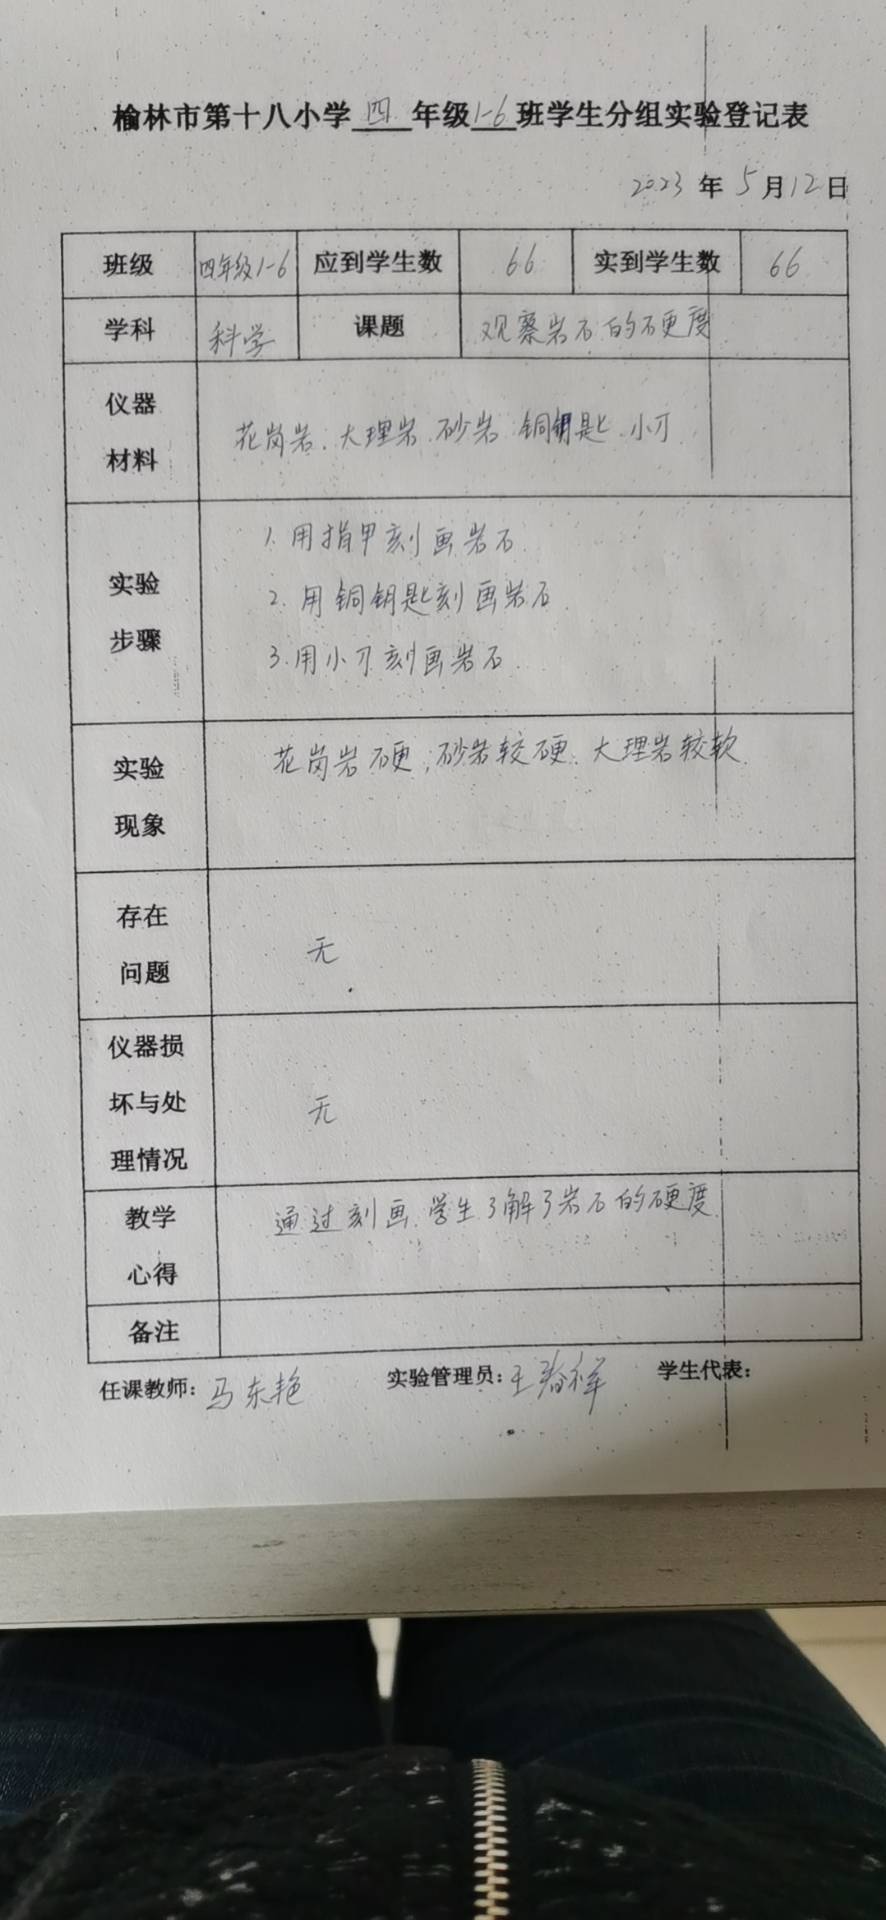 榆林市第十八小学 四 年级 1-6 班学生分组实验登记表
2023 年 5 月 12 日
班级 四年级1-6 应到学生数 66 实到学生数 66
学科 科学 课题 观察岩石的硬度
仪器
材料
花岗岩、大理岩、砂岩、铜钥匙、小刀
实验
步骤
1. 用指甲刻画岩石
2. 用铜钥匙刻画岩石
3. 用小刀刻画岩石
实验
现象
花岗岩硬，砂岩较硬，大理岩较软
存在
问题
无
仪器损
坏与处
理情况
无
教学
心得
通过刻画，学生了解了岩石的硬度
备注
任课教师：马东艳 实验管理员：王春祥 学生代表：